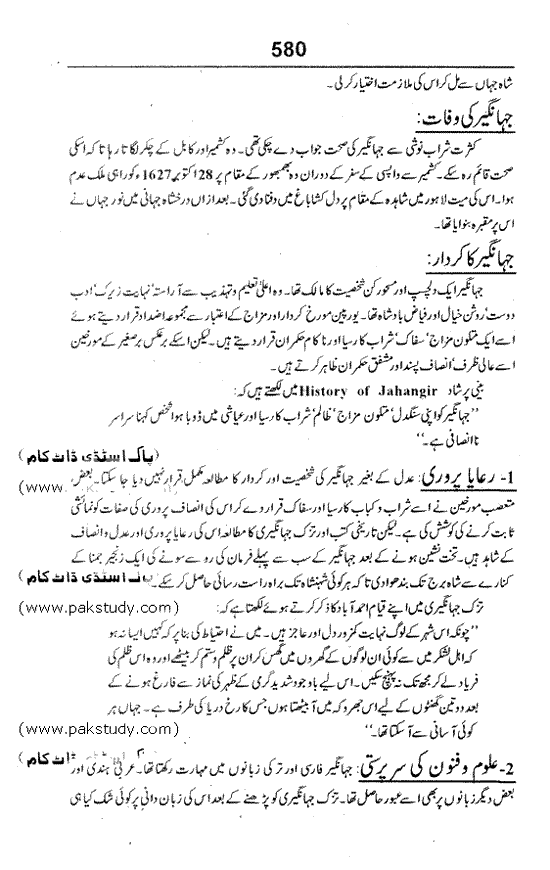 580
شاہ جہاں سے مل کر اس کی ملازمت اختیار کر لی۔
جہانگیر کی وفات:
کثرت شراب نوشی سے جہانگیر کی صحت جواب دے چکی تھی۔ وہ کشمیر اور کابل کے چکر لگاتا رہا تا کہ اسکی
صحت قائم رہ سکے۔ کشمیر سے واپسی کے سفر کے دوران وہ بھمبھور کے مقام پر 28 اکتوبر 1627ء کو راہی ملک عدم
ہوا۔ اس کی میت لاہور میں شاہدہ کے مقام پر دل کشا باغ میں دفنا دی گئی۔ بعد ازاں درخشاہ جہانی میں نور جہاں نے
اس پر مقبرہ بنوایا تھا۔
جہانگیر کا کردار:
جہانگیر ایک دلچسپ اور مسحور کن شخصیت کا مالک تھا۔ وہ اعلیٰ تعلیم و تہذیب سے آراستہ' نہایت زیرک' ادب
دوست' روشن خیال اور فیاض بادشاہ تھا۔ یورپین مورخ کردار اور مزاج کے اعتبار سے مجموعہ اضداد قرار دیتے ہوئے
اسے ایک متلون مزاج' سفاک' شراب کا رسیا اور ناکام حکمران قرار دیتے ہیں۔ لیکن اسکے برعکس برصغیر کے مورخین
اسے عالی ظرف' انصاف پسند اور مشفق حکمران ظاہر کرتے ہیں۔
بینی پرشاد History of Jahangir میں لکھتے ہیں کہ:
"جہانگیر کو اپنی سنگدل' متلون مزاج' ظالم' شراب کا رسیا اور عیاشی میں ڈوبا ہوا شخص کہنا سراسر
نا انصافی ہے۔"
(پاک اسٹڈی ڈاٹ کام)
1- رعایا پروری: عدل کے بغیر جہانگیر کی شخصیت اور کردار کا مطالعہ مکمل قرار نہیں دیا جا سکتا۔ بعض
(www.
متعصب مورخین نے اسے شراب و کباب کا رسیا اور سفاک قرار دے کر اس کی انصاف پروری کی صفات کو نمائشی
ثابت کرنے کی کوشش کی ہے۔ لیکن تاریخی کتب اور تزک جہانگیری کا مطالعہ اس کی رعایا پروری اور عدل و انصاف
کے شاہد ہیں۔ تخت نشین ہونے کے بعد جہانگیر کے سب سے پہلے فرمان کی رو سے سونے کی ایک زنجیر جمنا کے
کنارے سے شاہ برج تک بندھوا دی تا کہ ہر کوئی شہنشاہ تک براہ راست رسائی حاصل کر سکے۔
اسٹڈی ڈاٹ کام)
تزک جہانگیری میں اپنے قیام احمد آباد کا ذکر کرتے ہوئے لکھتا ہے کہ:
(www.pakstudy.com)
"چونکہ اس شہر کے لوگ نہایت کمزور دل اور عاجز ہیں۔ میں نے احتیاط کی بنا پر کہ کہیں ایسا نہ ہو
کہ اہل لشکر میں سے کوئی ان لوگوں کے گھروں میں گھس کر ان پر ظلم و ستم کر بیٹھے اور وہ اس ظلم کی
فریاد لے کر مجھ تک نہ پہنچ سکیں۔ اس لیے باوجود شدید گرمی کے ظہر کی نماز سے فارغ ہونے کے
بعد دو تین گھنٹوں کے لیے اس جھروکہ میں آ بیٹھتا ہوں جس کا رخ دریا کی طرف ہے۔ جہاں ہر
کوئی آسانی سے آ سکتا تھا۔"
(www.pakstudy.com)
2- علوم و فنون کی سرپرستی: جہانگیر فارسی اور ترکی زبانوں میں مہارت رکھتا تھا۔ عربی' ہندی اور
ڈاٹ کام)
بعض دیگر زبانوں پر بھی اسے عبور حاصل تھا۔ تزک جہانگیری کو پڑھنے کے بعد اس کی زبان دانی پر کوئی شک کیا ہی
(www.pakstudy.com)